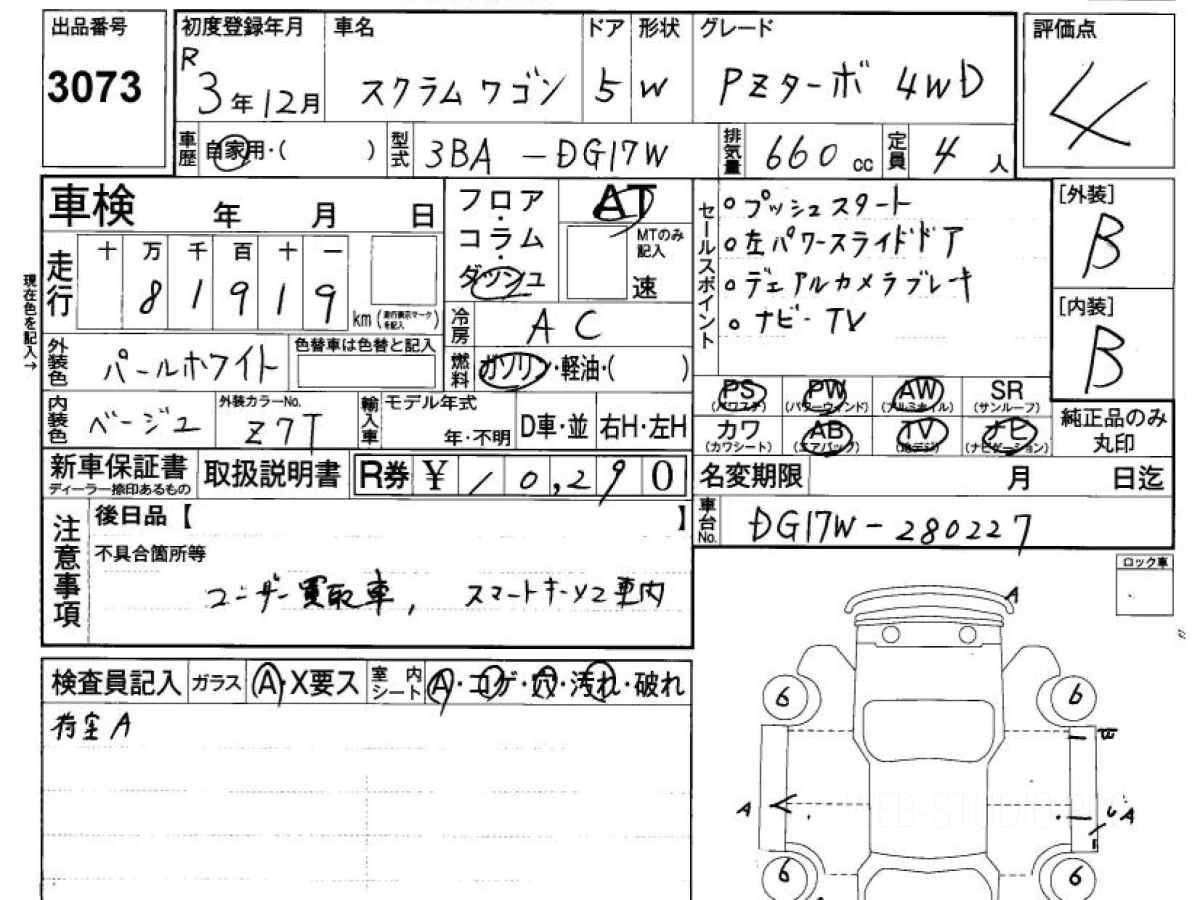 出品番号
3073
初度登録年月
R
3年12月
車名
スクラムワゴン
ドア
5
形状
W
グレード
PZターボ 4WD
評価点
4
車歴
自家用・( )
型式
3BA-DG17W
排気量
660 cc
定員
4 人
車検 年 月 日
走行
十 万 千 百 十 一
8 1 9 1 9
km(走行表示マークを記入)
現在色を記入→
外装色
パールホワイト
色替車は色替と記入
内装色
ベージュ
外装カラーNo.
Z7T
輸入車
モデル年式
年・不明
D車・並
右H・左H
フロア・
コラム・
ダッシュ
AT
MTのみ記入
速
冷房
AC
燃料
ガソリン・軽油・( )
セールスポイント
o プッシュスタート
o 左パワースライドドア
o デュアルカメラブレーキ
o ナビ・TV
[外装]
B
[内装]
B
PS
(パワステ)
PW
(パワーウィンド)
AW
(アルミホイル)
SR
(サンルーフ)
カワ
(カワシート)
AB
(エアバック)
TV
(地デジ)
ナビ
(ナビゲーション)
純正品のみ
丸印
新車保証書
ディーラー捺印あるもの
取扱説明書
R券 ¥10,290
名変期限 月 日迄
車台No.
DG17W-280227
注意事項
後日品【 】
不具合箇所等
ユーザー買取車, スマートキーX2車内
ロック車
検査員記入
ガラス
A・X要ス
室内シート
A・コゲ・穴・汚れ・破れ
荷室A
A
6
6
A
A
6
6
WEB-STUDIO.PRO